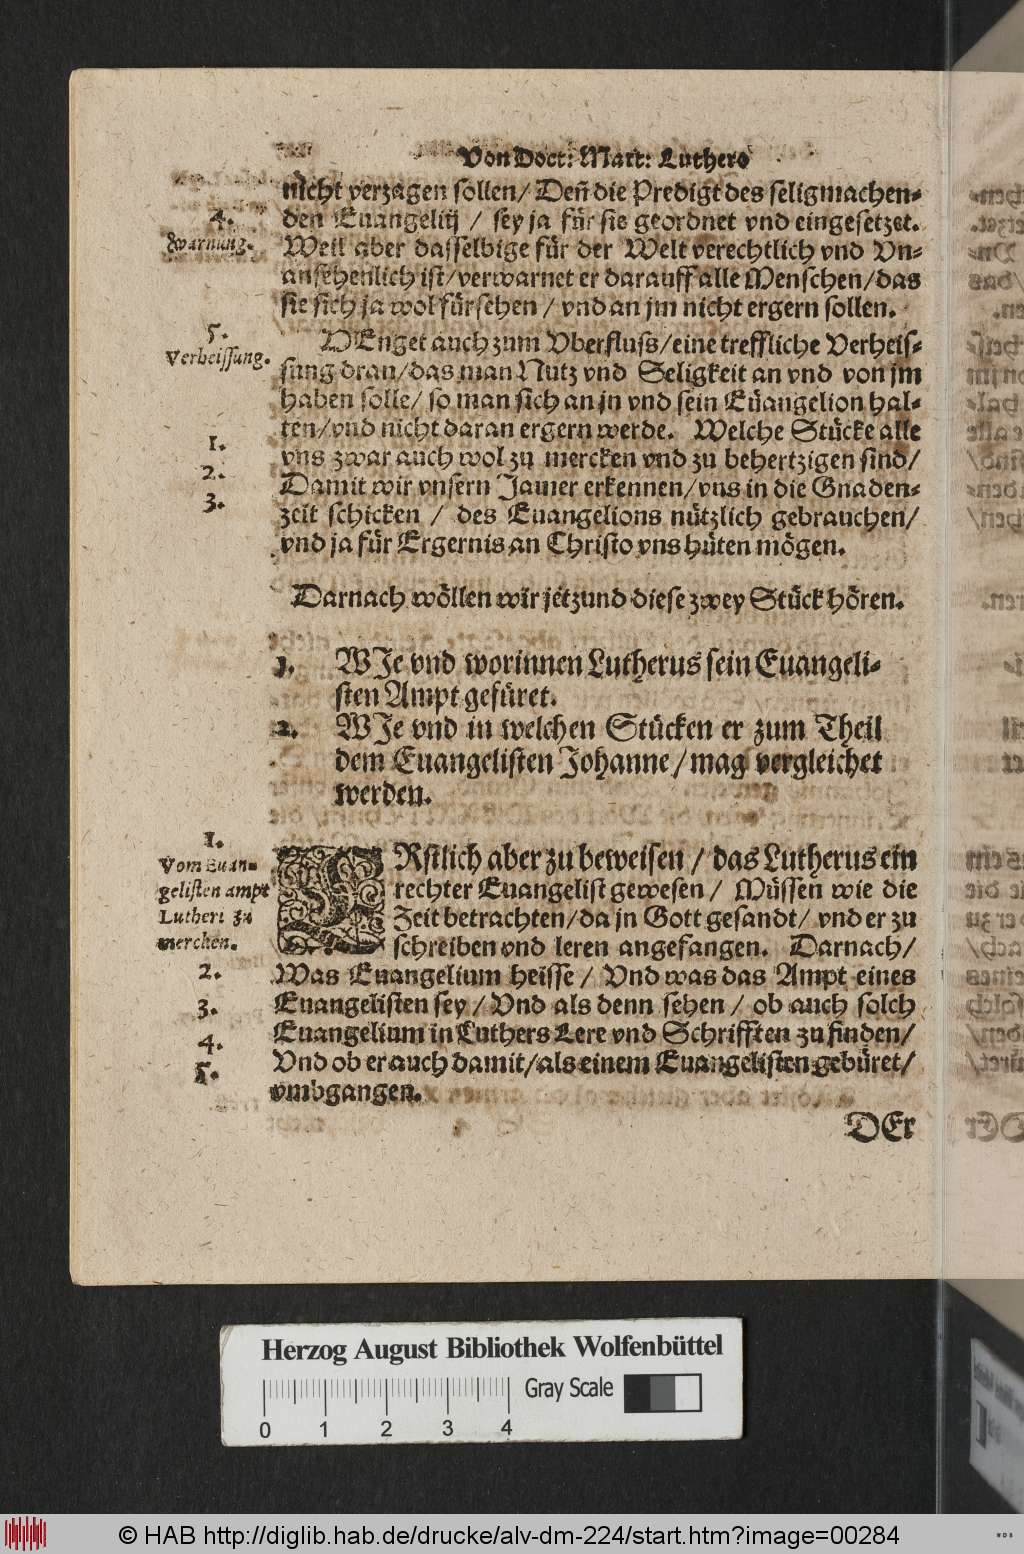 Von Doct: Mart: Luthero
nicht verzagen sollen/ Deñ die Predigt des seligmachen-
4. den Euangelij / sey ja für sie geordnet vnd eingesetzet.
Warnung. Weil aber dasselbige für der Welt verechtlich vnd Vn-
ansehenlich ist/ verwarnet er darauff alle Menschen/ das
sie sich ja wol fürsehen / vnd an jm nicht ergern sollen.
5.
Verheissung. HEnget auch zum Vberfluss/ eine treffliche Verheis-
sung dran/ das man Nutz vnd Seligkeit an vnd von jm
haben solle/ so man sich an jn vnd sein Euangelion hal-
1. ten/ vnd nicht daran ergern werde. Welche Stücke alle
2. vns zwar auch wol zu mercken vnd zu behertzigen sind/
Damit wir vnsern Jamer erkennen/ vns in die Gnaden-
3. zeit schicken / des Euangelions nützlich gebrauchen/
vnd ja für Ergernis an Christo vns hüten mögen.
Darnach wöllen wir jetzund diese zwey Stück hören.
1. WIe vnd worinnen Lutherus sein Euangeli-
sten Ampt gefüret.
2. WIe vnd in welchen Stücken er zum Theil
dem Euangelisten Johanne/ mag vergleichet
werden.
1.
Vom Euan-
gelisten ampt
Lutheri zu
merchen.
ERstlich aber zu beweisen / das Lutherus ein
rechter Euangelist gewesen / Müssen wie die
Zeit betrachten/ da jn Gott gesandt/ vnd er zu
schreiben vnd leren angefangen. Darnach/
2. Was Euangelium heisse / Vnd was das Ampt eines
3. Euangelisten sey / Vnd als denn sehen / ob auch solch
4. Euangelium in Luthers Lere vnd Schrifften zu finden/
5. Vnd ob er auch damit/ als einem Euangelisten gebüret/
vmbgangen.
DEr
Herzog August Bibliothek Wolfenbüttel
Gray Scale
0 1 2 3 4
© HAB http://diglib.hab.de/drucke/alv-dm-224/start.htm?image=00284